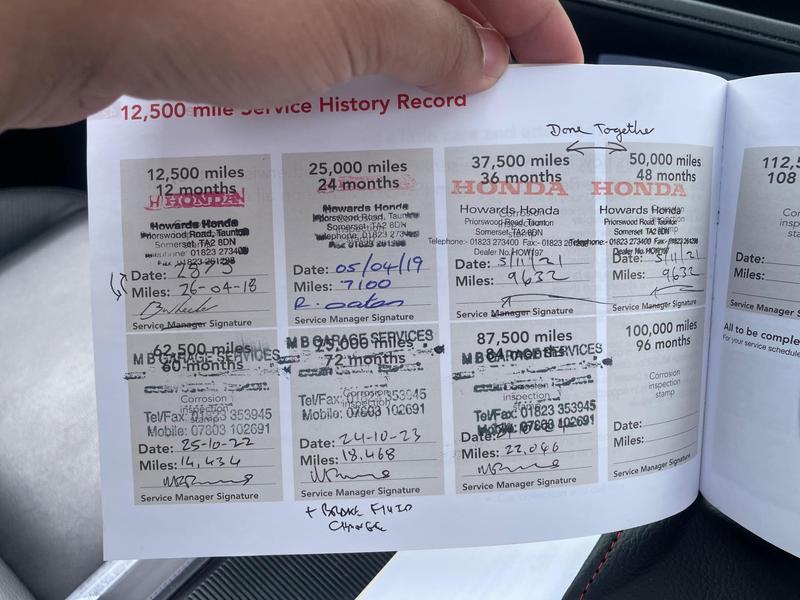 12,500 mile Service History Record
Done Together
12,500 miles
12 months
HONDA
Howards Honda
Priorswood Road, Taunton
Somerset, TA2 8DN
Telephone: 01823 273400
Fax 01823 261298
Date: 2875
Miles: 26-04-18
Service Manager Signature
25,000 miles
24 months
Howards Honda
Priorswood Road, Taunton
Somerset, TA2 8DN
Telephone: 01823 273400
Fax 01823 261298
Date: 05/04/19
Miles: 7100
R. Oaten
Service Manager Signature
37,500 miles
36 months
HONDA
Howards Honda
Priorswood Road, Taunton
Somerset, TA2 8DN
Telephone:- 01823 273400 Fax:- 01823 261298
Dealer No. HOW197
Date: 5/11/21
Miles: 9632
Service Manager Signature
50,000 miles
48 months
HONDA
Howards Honda
Priorswood Road, Taunton
Somerset, TA2 8DN
Telephone:- 01823 273400 Fax:- 01823 261298
Dealer No. HOW197
Date: 5/11/21
Miles: 9632
Service Manager Signature
62,500 miles
60 months
M B GARAGE SERVICES
Corrosion
inspection
stamp
Tel/Fax: 01823 353945
Mobile: 07803 102691
Date: 25-10-22
Miles: 14,434
Service Manager Signature
75,000 miles
72 months
M B GARAGE SERVICES
Corrosion
inspection
Tel/Fax: 01823 353945
Mobile: 07803 102691
Date: 24-10-23
Miles: 18,468
Service Manager Signature
+ BRAKE FLUID
CHANGE
87,500 miles
84 months
M B GARAGE SERVICES
Corrosion
inspection
Tel/Fax: 01823 353945
Mobile: 07803 102691
Date:
Miles: 22,046
Service Manager Signature
100,000 miles
96 months
Corrosion
inspection
stamp
Date:
Miles:
Service Manager Signature
112,5
108
Corrosion
inspection
stamp
Date:
Miles:
Service Manager
All to be comple
For your service schedule